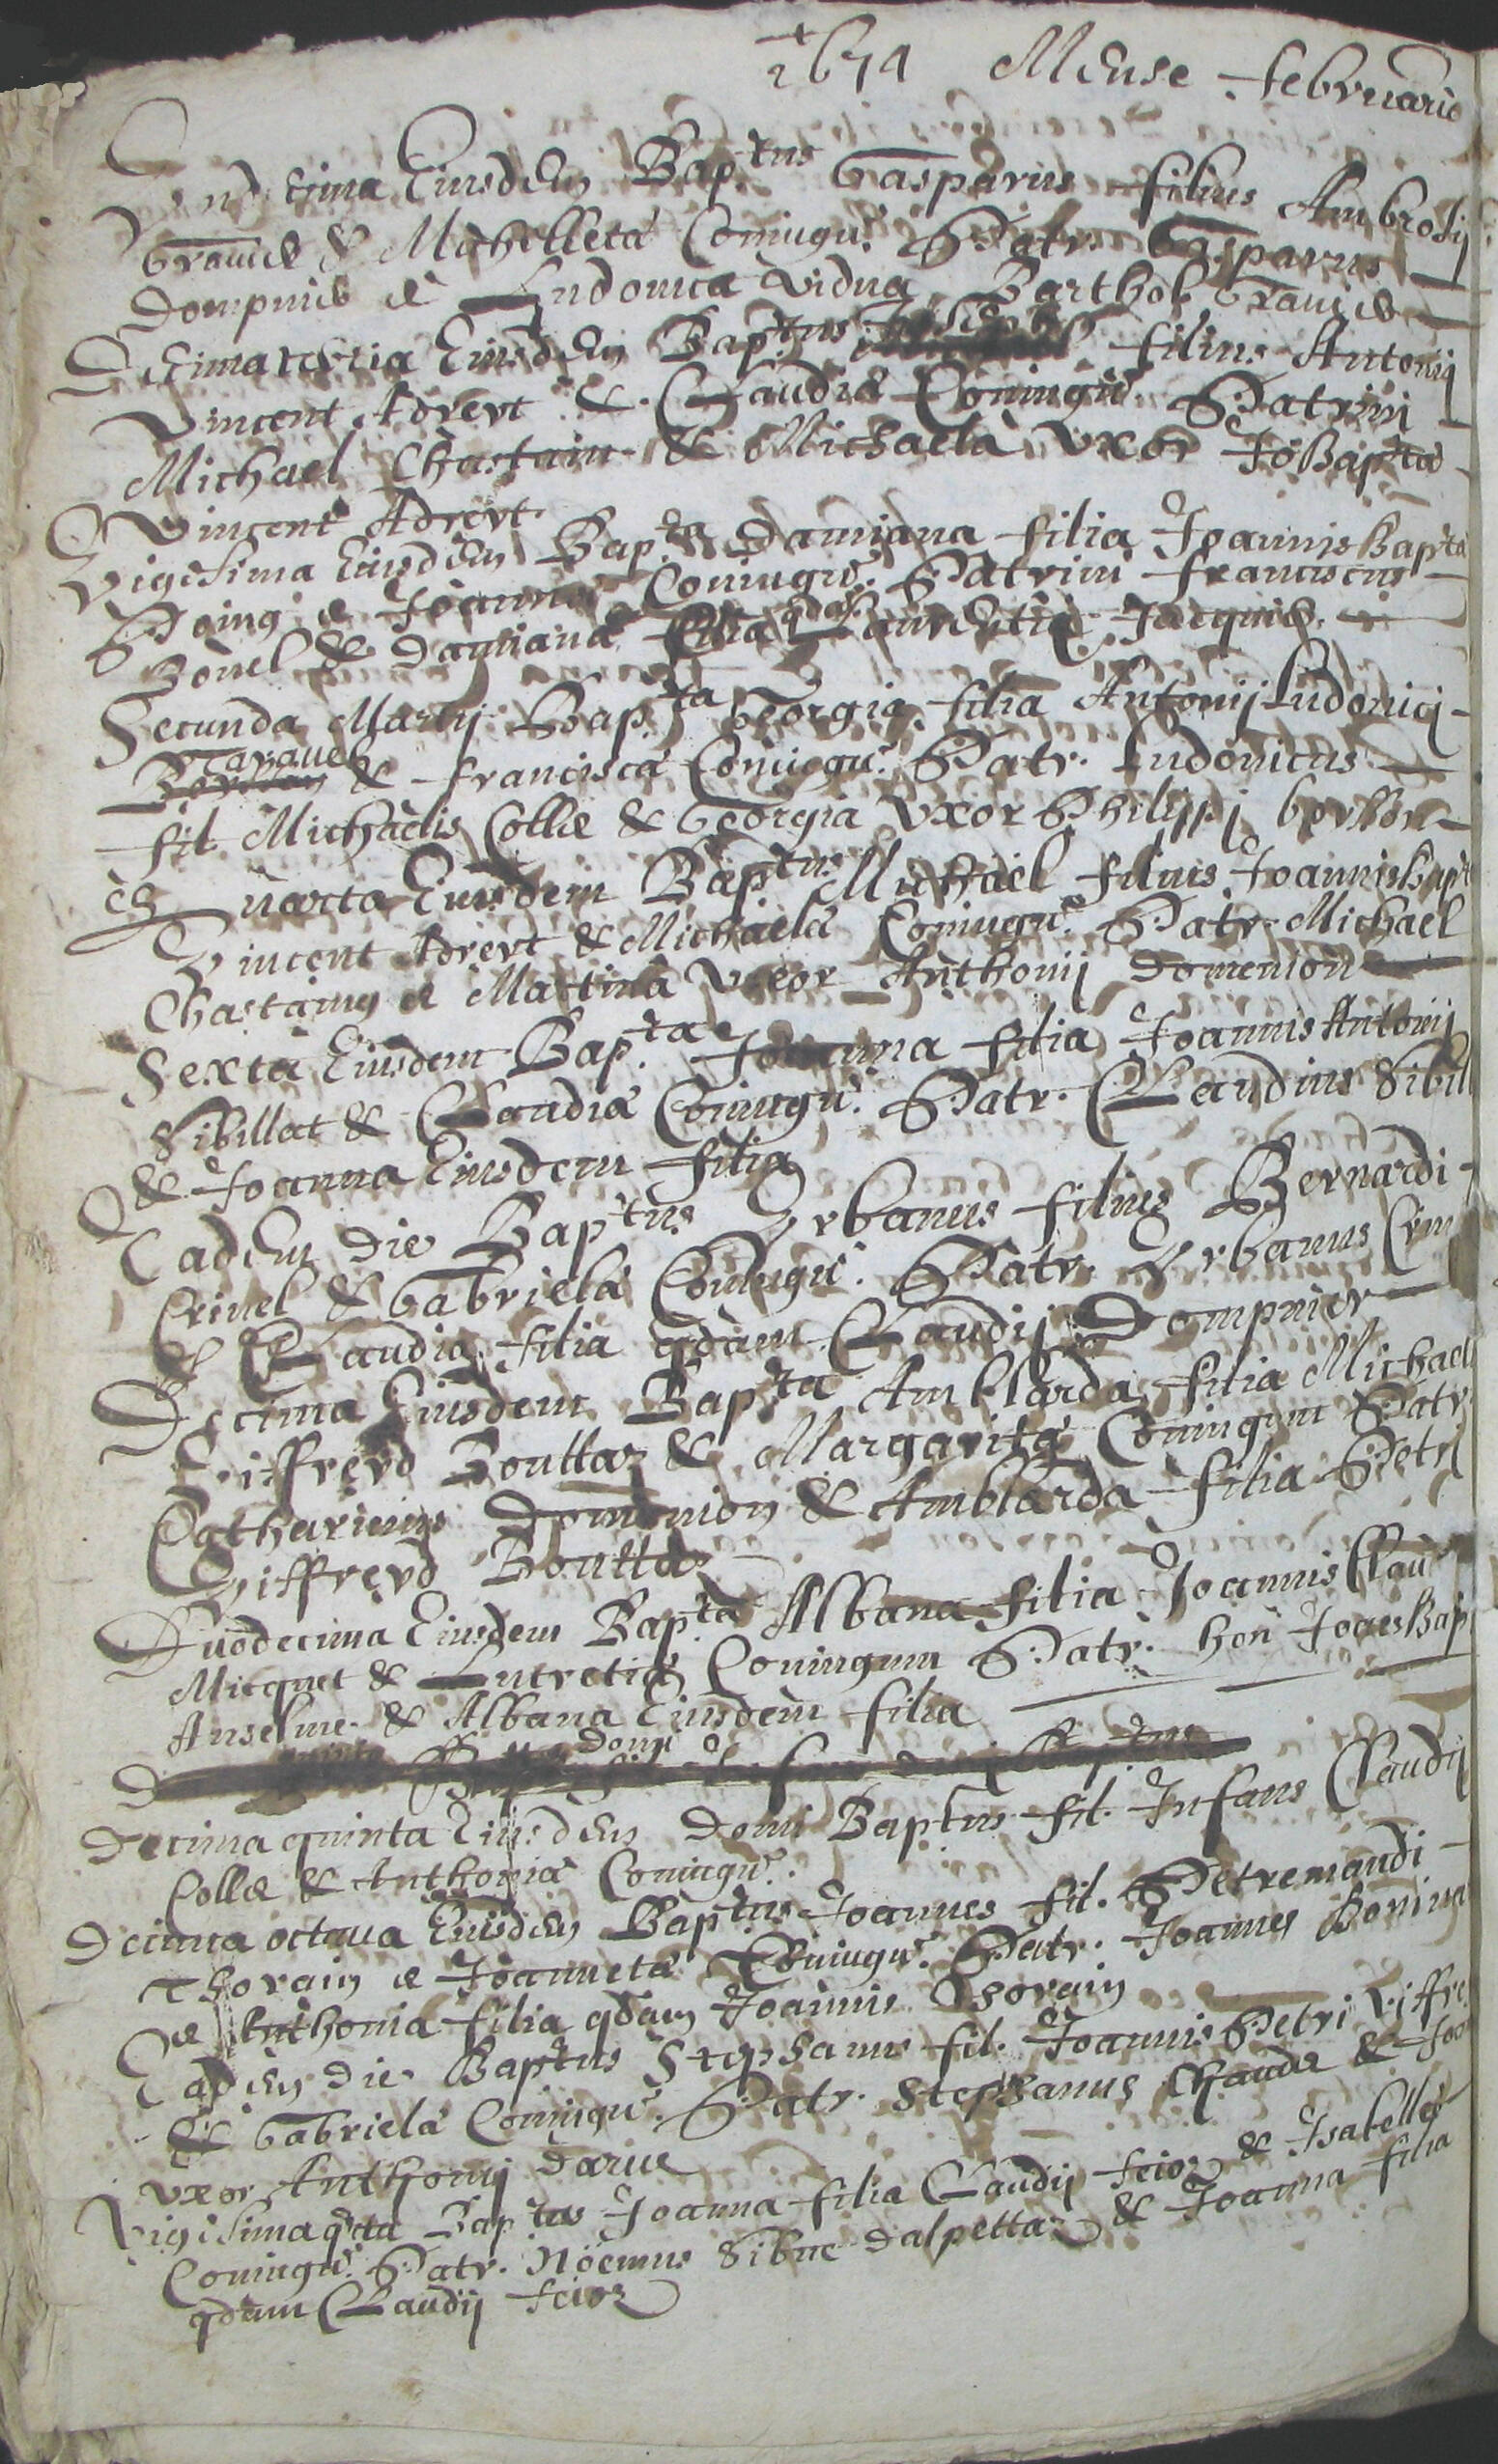 1614 Mense februario
Undecima Eiusdem Bap.tus Gasparus filius Ambrosij
Grande & Michelletæ Coniugu. Patr. Gasparus
Dompnier & Ludovica vidua Barthol. Grande
Decimatertia Eiusdem Bap.tus filius Antonij
Vincent Adrert & Claudiæ Coniugu. Patrini
Michael Chastain & Michaela Uxor Jo Bap.tæ
Vincent Adrert
Vigesima Eiusdem Bap.ta Damiana filia Joannis Bap.tæ
Poing & Joannæ Coniugu. Patrini franciscus
Bonel & Damiana filia qda Laurentii Jacquie
Secunda Martij Bap.ta Georgia filia Antonij Ludovicj
Taravel & franciscæ Coniugu. Patr. Ludovicus
fil. Michaelis Collæ & Georgia Uxor Philippj
Quarta Eiusdem Bap.tus Michael filius Joannis Bap.t
Vincent Adrert & Michaelæ Coniugu. Patr. Michael
Chastaing & Martina Uxor Anthonij Domenion
Sexta Eiusdem Bap.ta Joanna filia Joannis Antonij
Sibillat & Claudiæ Coniugu. Patr. Claudius Sibil
& Joanna Eiusdem filia
Eadem die Bap.tus Urbanus filius Bernardi
Crinel & Gabrielæ Coniugu. Patr. Urbanus Crin
& Claudia filia qdam Claudij Dompnier
Decima Eiusdem Bap.ta Amblarda filia Michael
Giffrerd Bouttaz & Margaritæ Coniugum Patr
Catharinus Domenion & Amblarda filia Petrj
Giffrerd Boutta
Duodecima Eiusdem Bap.ta Albana filia Joannis Clau
Micquet & Lucretiæ Coniugum Patr. hon Joaes Bap
Anselme & Albana Eiusdem filia
Decima quinta Eiusdem Domi Baptus fil. Infans Claudij
Collæ & Anthoniæ Coniugu.
Decima octava Eiusdem Bap.tus Joannes fil. Petremandi
Thorain & Joannetæ Coniugu. Patr. Joannes Boniva
& Anthonia filia qdam Joannis Thorain
Eadem die Baptus Stephanus fil. Joannis Petri Viffre
& Gabrielæ Coniugu. Patr. Stephanus Chaudæ & Joa
uxor Anthonij Darve
Vigesima qta Bap.tus Joanna filia Claudij feioz & Isabellæ
Coniugu. Patr. Noemus Sibue Dalpettaz & Joanna filia
qdam Claudij feioz